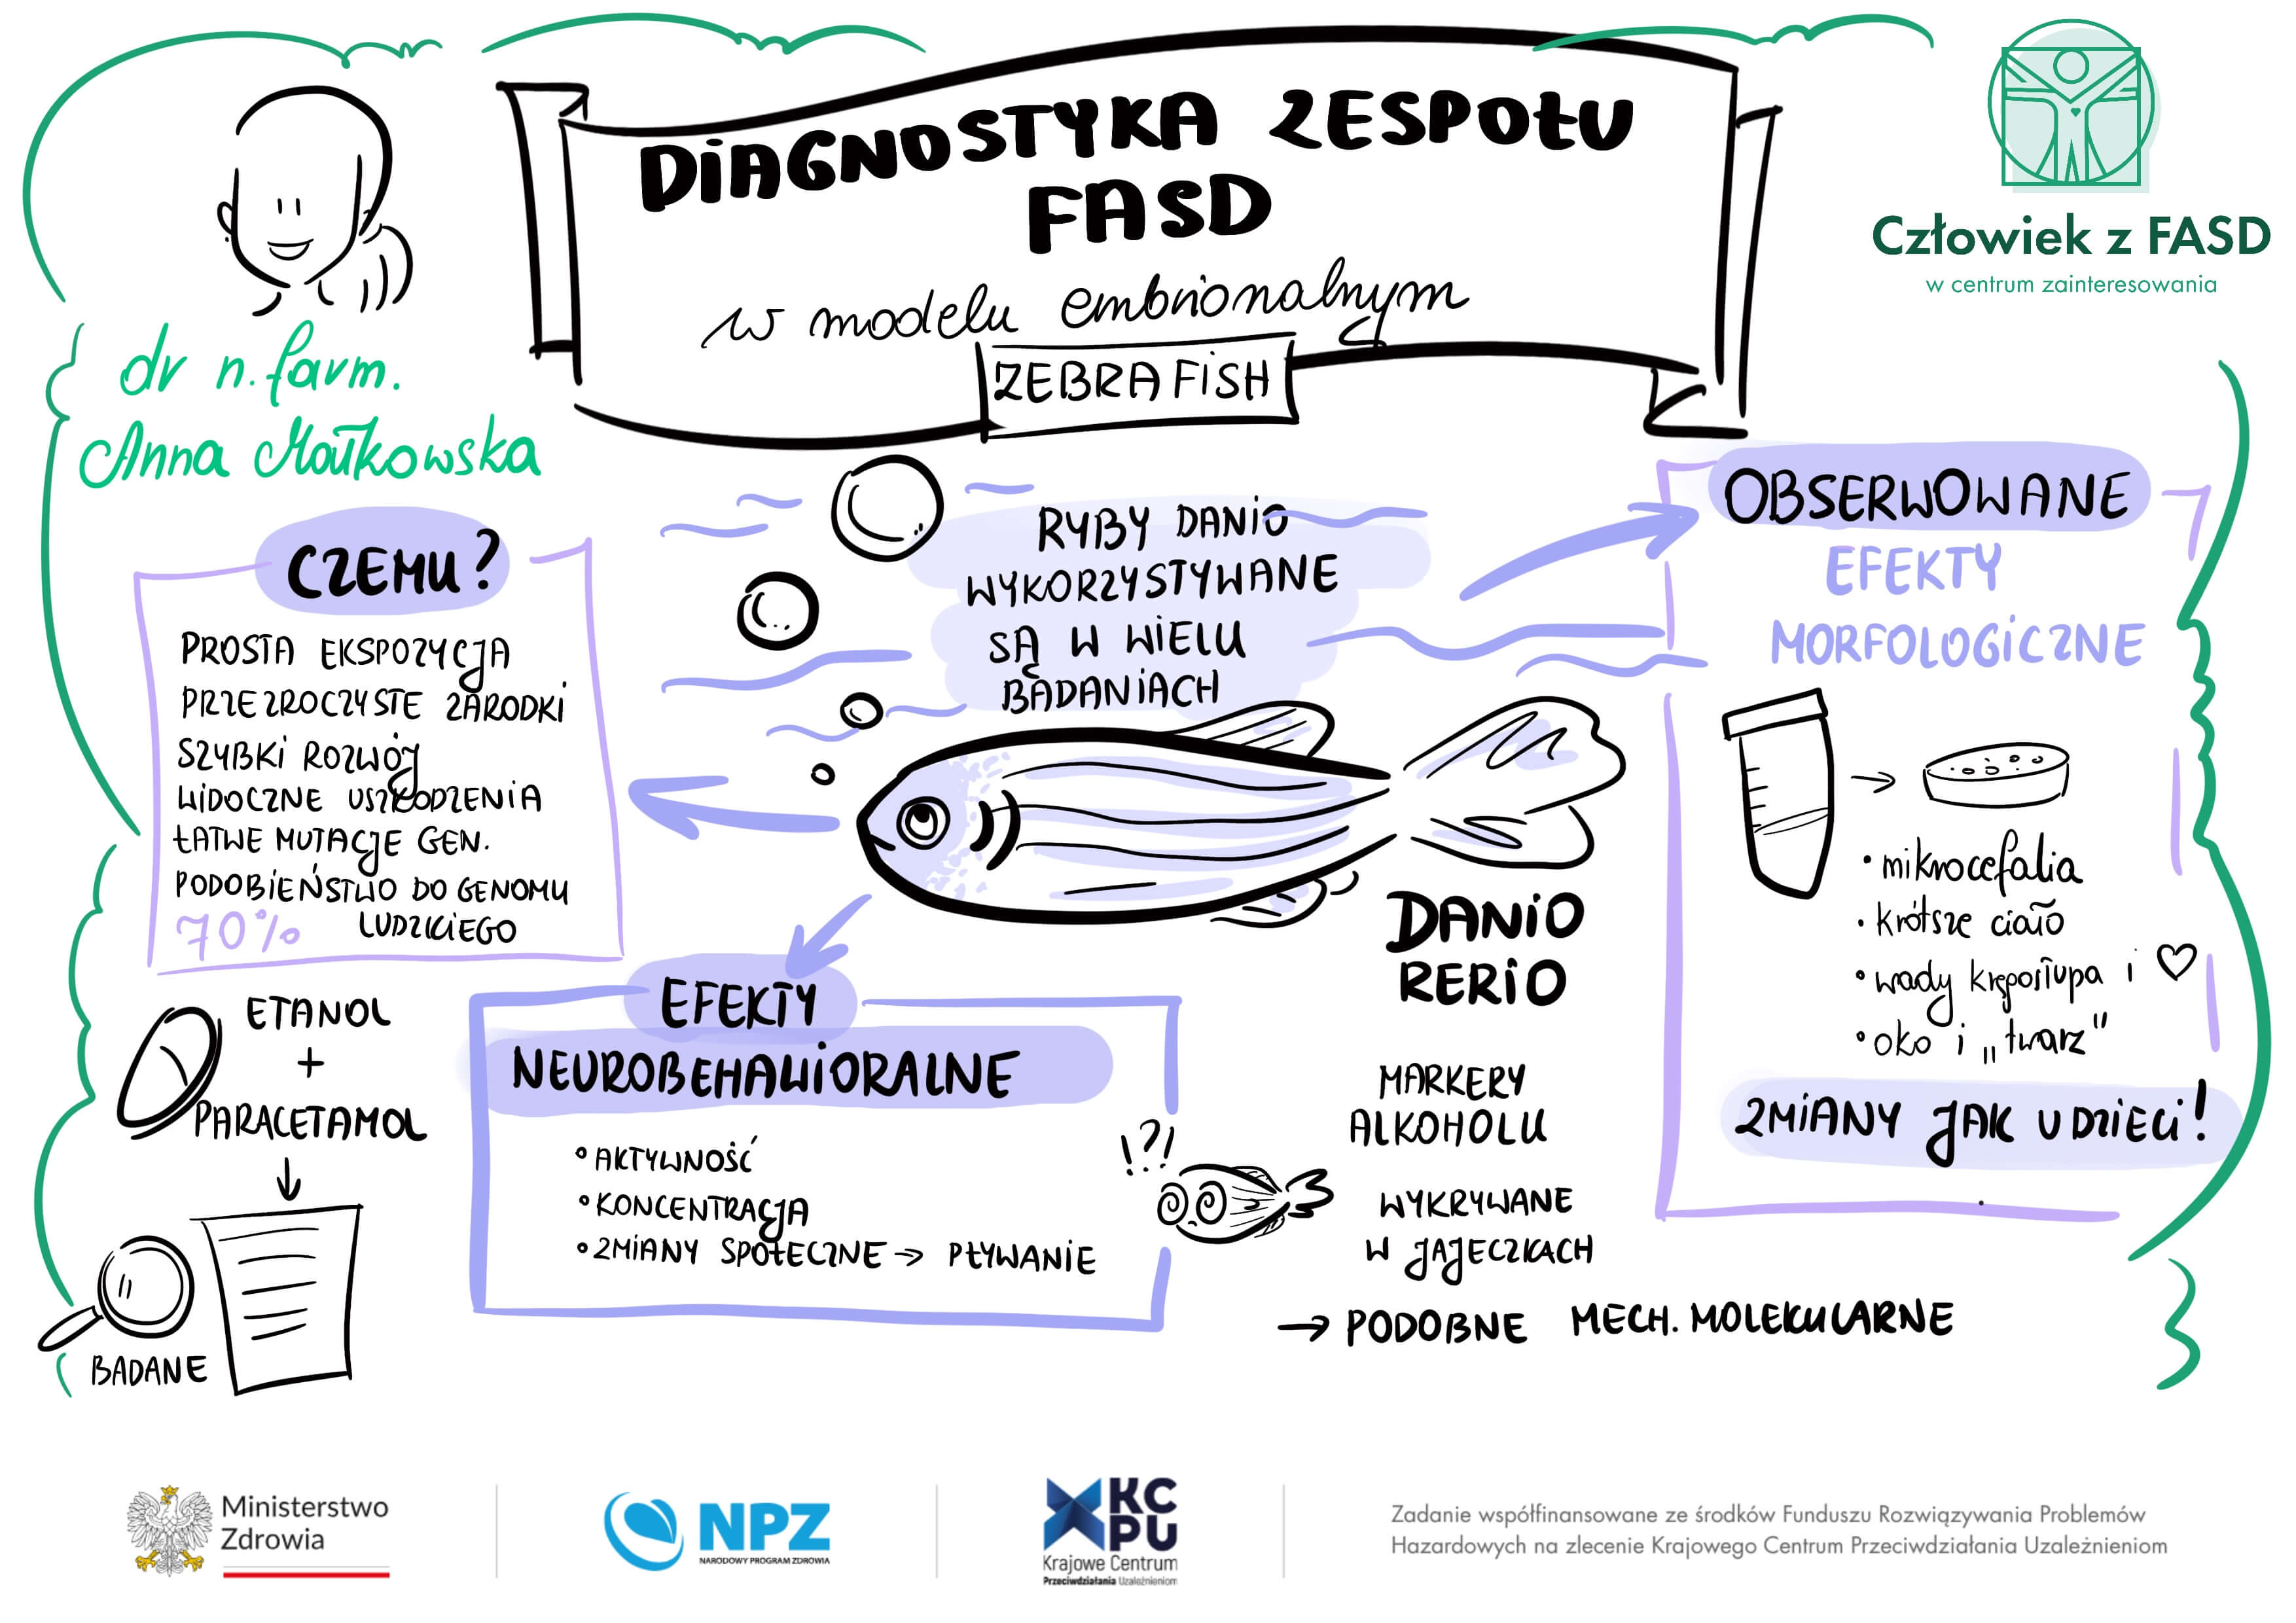 DIAGNOSTYKA ZESPOŁU
FASD
w modelu embrionalnym
ZEBRA FISH
Człowiek z FASD
w centrum zainteresowania
dr n. farm.
Anna Małkowska
CZEMU?
PROSTA EKSPOZYCJA
PRZEZROCZYSTE ZARODKI
SZYBKI ROZWÓJ
WIDOCZNE USZKODZENIA
ŁATWE MUTACJE GEN.
PODOBIEŃSTWO DO GENOMU
70% LUDZKIEGO
ETANOL
+
PARACETAMOL
BADANE
RYBY DANIO
WYKORZYSTYWANE
SĄ W WIELU
BADANIACH
DANIO
RERIO
EFEKTY
NEUROBEHAWIORALNE
• AKTYWNOŚĆ
• KONCENTRACJA
• ZMIANY SPOŁECZNE → PŁYWANIE
!?!
MARKERY
ALKOHOLU
WYKRYWANE
W JAJECZKACH
→ PODOBNE MECH. MOLEKULARNE
OBSERWOWANE
EFEKTY
MORFOLOGICZNE
• mikrocefalia
• krótsze ciało
• wady kręgosłupa i ♡
• oko i „twarz"
ZMIANY JAK U DZIECI!
Ministerstwo
Zdrowia
NPZ
NARODOWY PROGRAM ZDROWIA
KC
PU
Krajowe Centrum
Przeciwdziałania Uzależnieniom
Zadanie współfinansowane ze środków Funduszu Rozwiązywania Problemów
Hazardowych na zlecenie Krajowego Centrum Przeciwdziałania Uzależnieniom